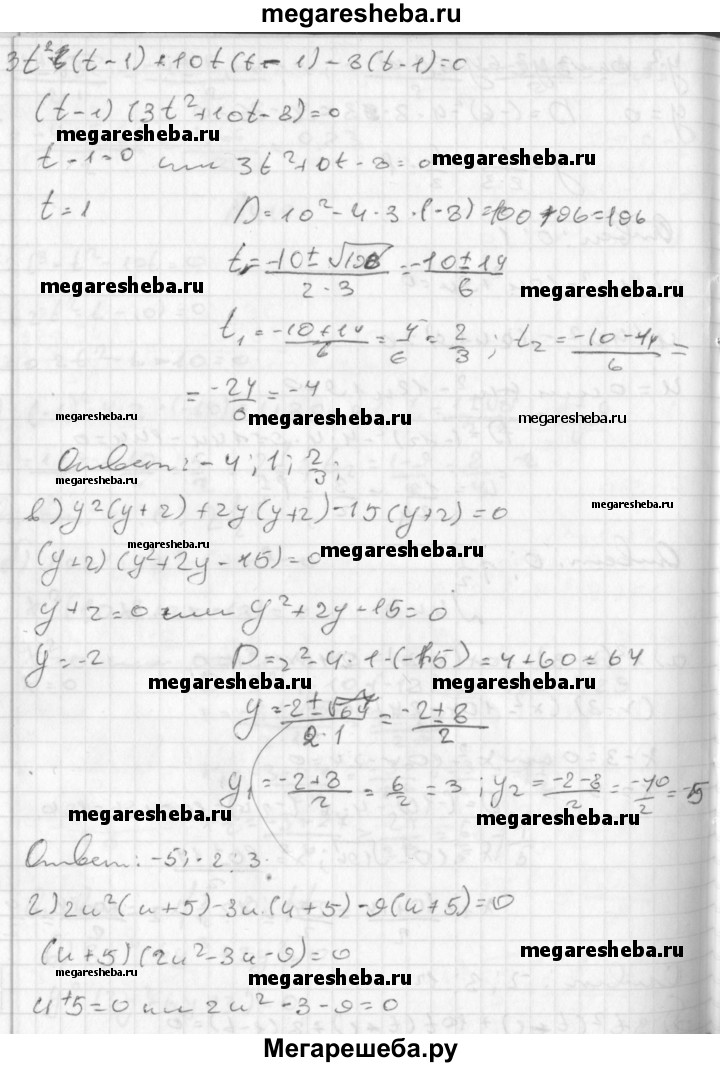 megaresheba.ru
3t²(t-1)+10t(t-1)-8(t-1)=0
(t-1)(3t²+10t-8)=0
megaresheba.ru
t-1=0 или 3t²+10t-8=0
megaresheba.ru
t=1 D=10²-4·3·(-8)=100+96=196
t=(-10±√196)/(2·3)=(-10±14)/6
megaresheba.ru
megaresheba.ru
t₁=(-10+14)/6=4/6=2/3; t₂=(-10-14)/6=
=-24/6=-4
megaresheba.ru megaresheba.ru megaresheba.ru
Ответ: -4; 1; 2/3;
megaresheba.ru
в) y²(y+2)+2y(y+2)-15(y+2)=0
megaresheba.ru megaresheba.ru
(y+2)(y²+2y-15)=0
y+2=0 или y²+2y-15=0
y=-2 D=2²-4·1·(-15)=4+60=64
megaresheba.ru megaresheba.ru
y=(-2±√64)/(2·1)=(-2±8)/2
y₁=(-2+8)/2=6/2=3; y₂=(-2-8)/2=-10/2=-5
megaresheba.ru megaresheba.ru
Ответ: -5; -2; 3.
г) 2u²(u+5)-3u(u+5)-9(u+5)=0
(u+5)(2u²-3u-9)=0
megaresheba.ru
megaresheba.ru megaresheba.ru
u+5=0 или 2u²-3-9=0
Мегарешеба.ру